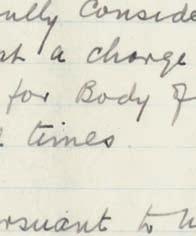 ully conside
st a charge
for Body of
times
rsuant to